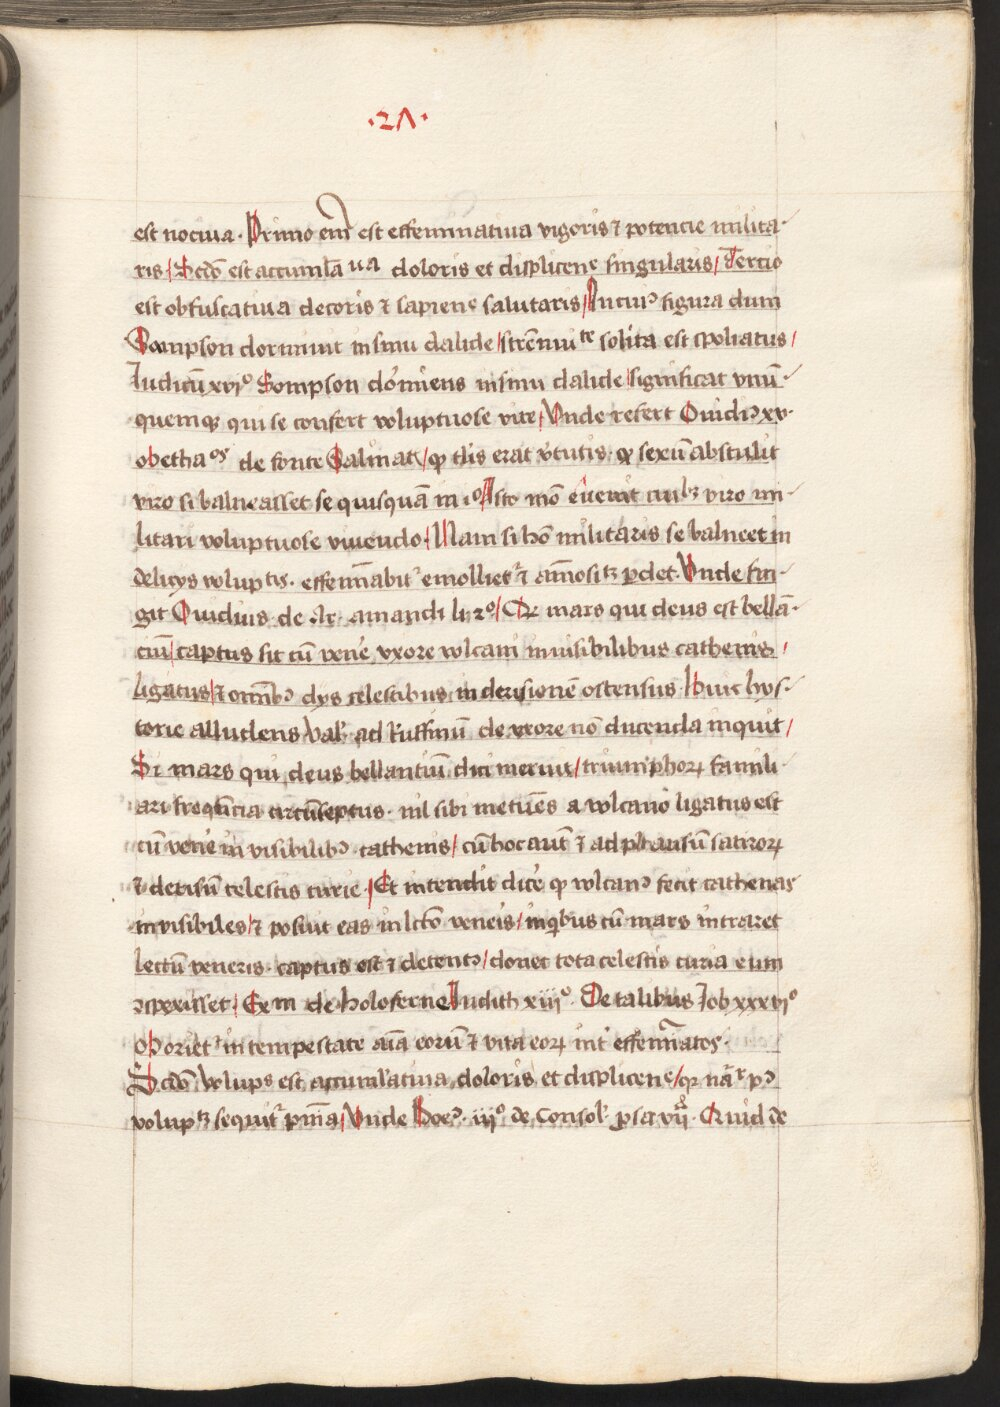 ·2Λ·
est nociua · Primo em̄ est effeminatiua vigoris ⁊ potencie milita-
ris / Scdo᷒ est accumla᷒ ua doloris et displicenc̨ singularis / Tercio
est obfuscatiua decoris ⁊ sapienc̨ salutaris / Iu cuiꝰ figura dum
Sompson dormiuit in sinu dalide / stre᷒nui te solita est spoliatus /
Iudicu᷒ xvi° Sompson do᷒miens in sinu dalide significat vnu᷒-
quemqꝫ qui se confert voluptuose vite / Vnde refert Ouidiꝰ xv·
obetha os de fonte Salmat / ꝙ tl᷒is erat v᷒tutis · ꝙ sexu᷒ abstulit
viro si balneasset se quisqua᷒ in i° Isto mo᷒ euenit cuilꝫ viro mi-
litari voluptuose viuendo · Nam si ho᷒ militaris se balneet in
delicijs voluptis · effemi᷒abit᷑ emolliet᷑ ⁊ a᷒i᷒ositꝫ ꝑdet · Vnde fin-
git Ouidius de Ar· amandi li 2° / Qr mars qui deus est bella᷒-
ciu᷒ / captus sit cu᷒ vene᷒ vxore wlcani inuisibilibus cathenis /
ligatus / ⁊ omi᷒bꝰ dijs celestibus in derisione᷒ ostensus · Huic hys-
torie alludens Val᷒ · ad Ruffinu᷒ de vxore no᷒ ducenda inquit /
Si mars qui deus bellantiu᷒ dici meruit / triumphoꝝ famili-
ari freque᷒cia circu᷒septus · nil sibi metue᷒s a wlcano ligatus est
cu᷒ vene᷒ in visibilibꝰ cathenis / cu᷒ hoc aut᷒ ⁊ ad plausu᷒ satiroꝝ
⁊ derisu᷒ celestis curie / Et intendit dice᷒ ꝙ wlcanꝰ fecit cathenas
inuisibiles / ⁊ posuit eas in lc᷒to veneis / in qͥbus cu᷒ mars intraret
lectu᷒ veneris · captus est ⁊ detentꝰ / donec tota celestis curia eum
ꝯspexisset · Exm de holoferne Iudith xiii° · De talibus Iob xxxvi°
Moriet᷑ in tempestate ai᷒a eoru᷒ ⁊ vita eoꝝ int᷒ effemi᷒atos ·
Scdo᷒ Volups est accumulatiua doloris et displicenc̨ / qꝛ na᷒r pꝰ
voluptꝫ sequit᷑ pe᷒na / Vnde Boeꝰ · iij° de Consol᷒ ꝓsa vij° · Quid de